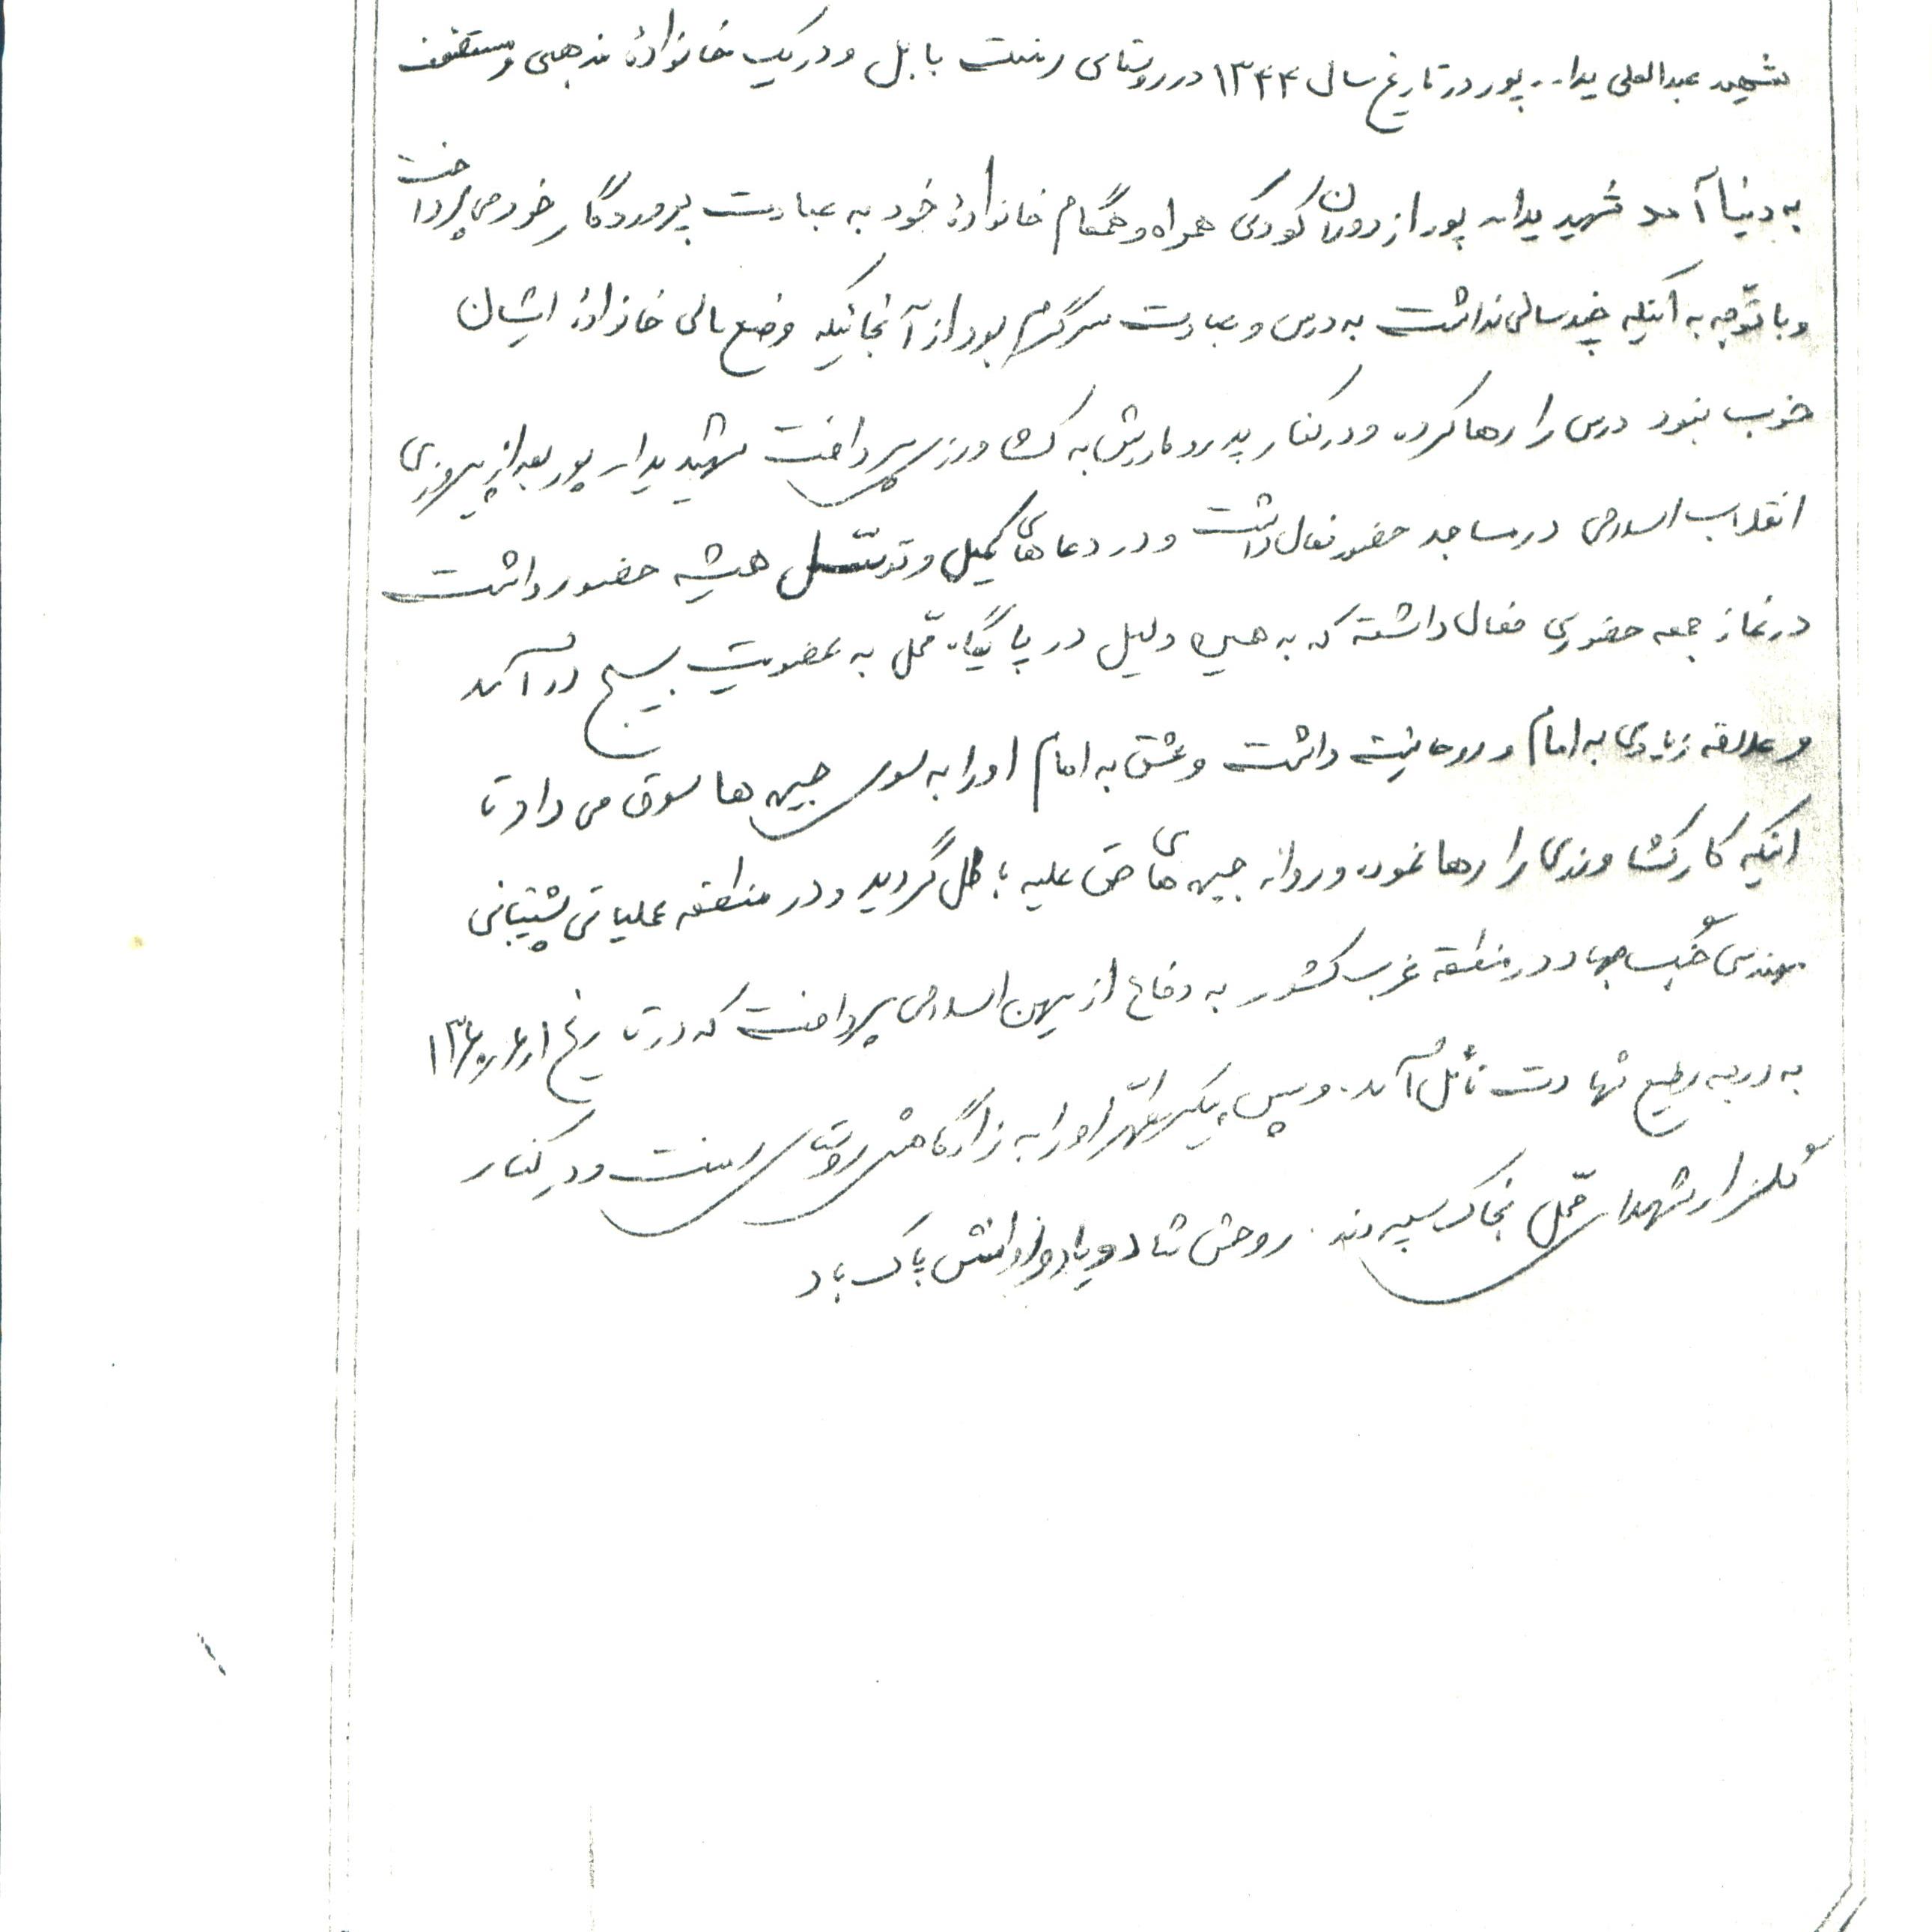 شهید عبدالعلی یدا.. پور در تاریخ سال ۱۳۴۴ در روستای رمنت بابل و در یک خانوادهٔ مذهبی و مستضعف
به دنیا آمد شهید یدا.. پور از دوران کودکی همراه و همگام خانوادهٔ خود به عبادت پروردگارِ خود می پرداخت
و با توّجه به اینکه چند سالی نداشت به درس و عبادت سرگرم بود از آنجائیکه وضع مالی خانوادهٔ ایشان
خوب نبود درس را رها کرده و در کنار پدر و مادرش به کشاورزی پرداخت شهید یدا.. پور بعد از پیروزی
انقلاب اسلامی در مساجد حضور فعال داشت و در دعاهای کمیل و توسّل همیشه حضور داشت
در نماز جمعه حضوری فعال داشته که به همین دلیل در پایگاه محّل به عضویت بسیج در آمد
و علاقه زیادی به امام و روحانیت داشت و عشق به امام او را به سوی جبهه ها سوق می داد تا
اینکه کار کشاورزی را رها نموده و روانه جبهه های حق علیه باطل گردید و در منطقه عملیاتی پشتیبانی
مهندسی جنگ جهاد در منطقه غرب کشور به دفاع از میهن اسلامی پرداخت که در تاریخ
به درجه رفیع شهادت نائل آمد. و سپس پیکر مطهّر او را به زادگاهش روستای رمنت و در کنار
گلزار شهدای محّل بخاک سپردند. روحش شاد و یاد و راهش پاک باد